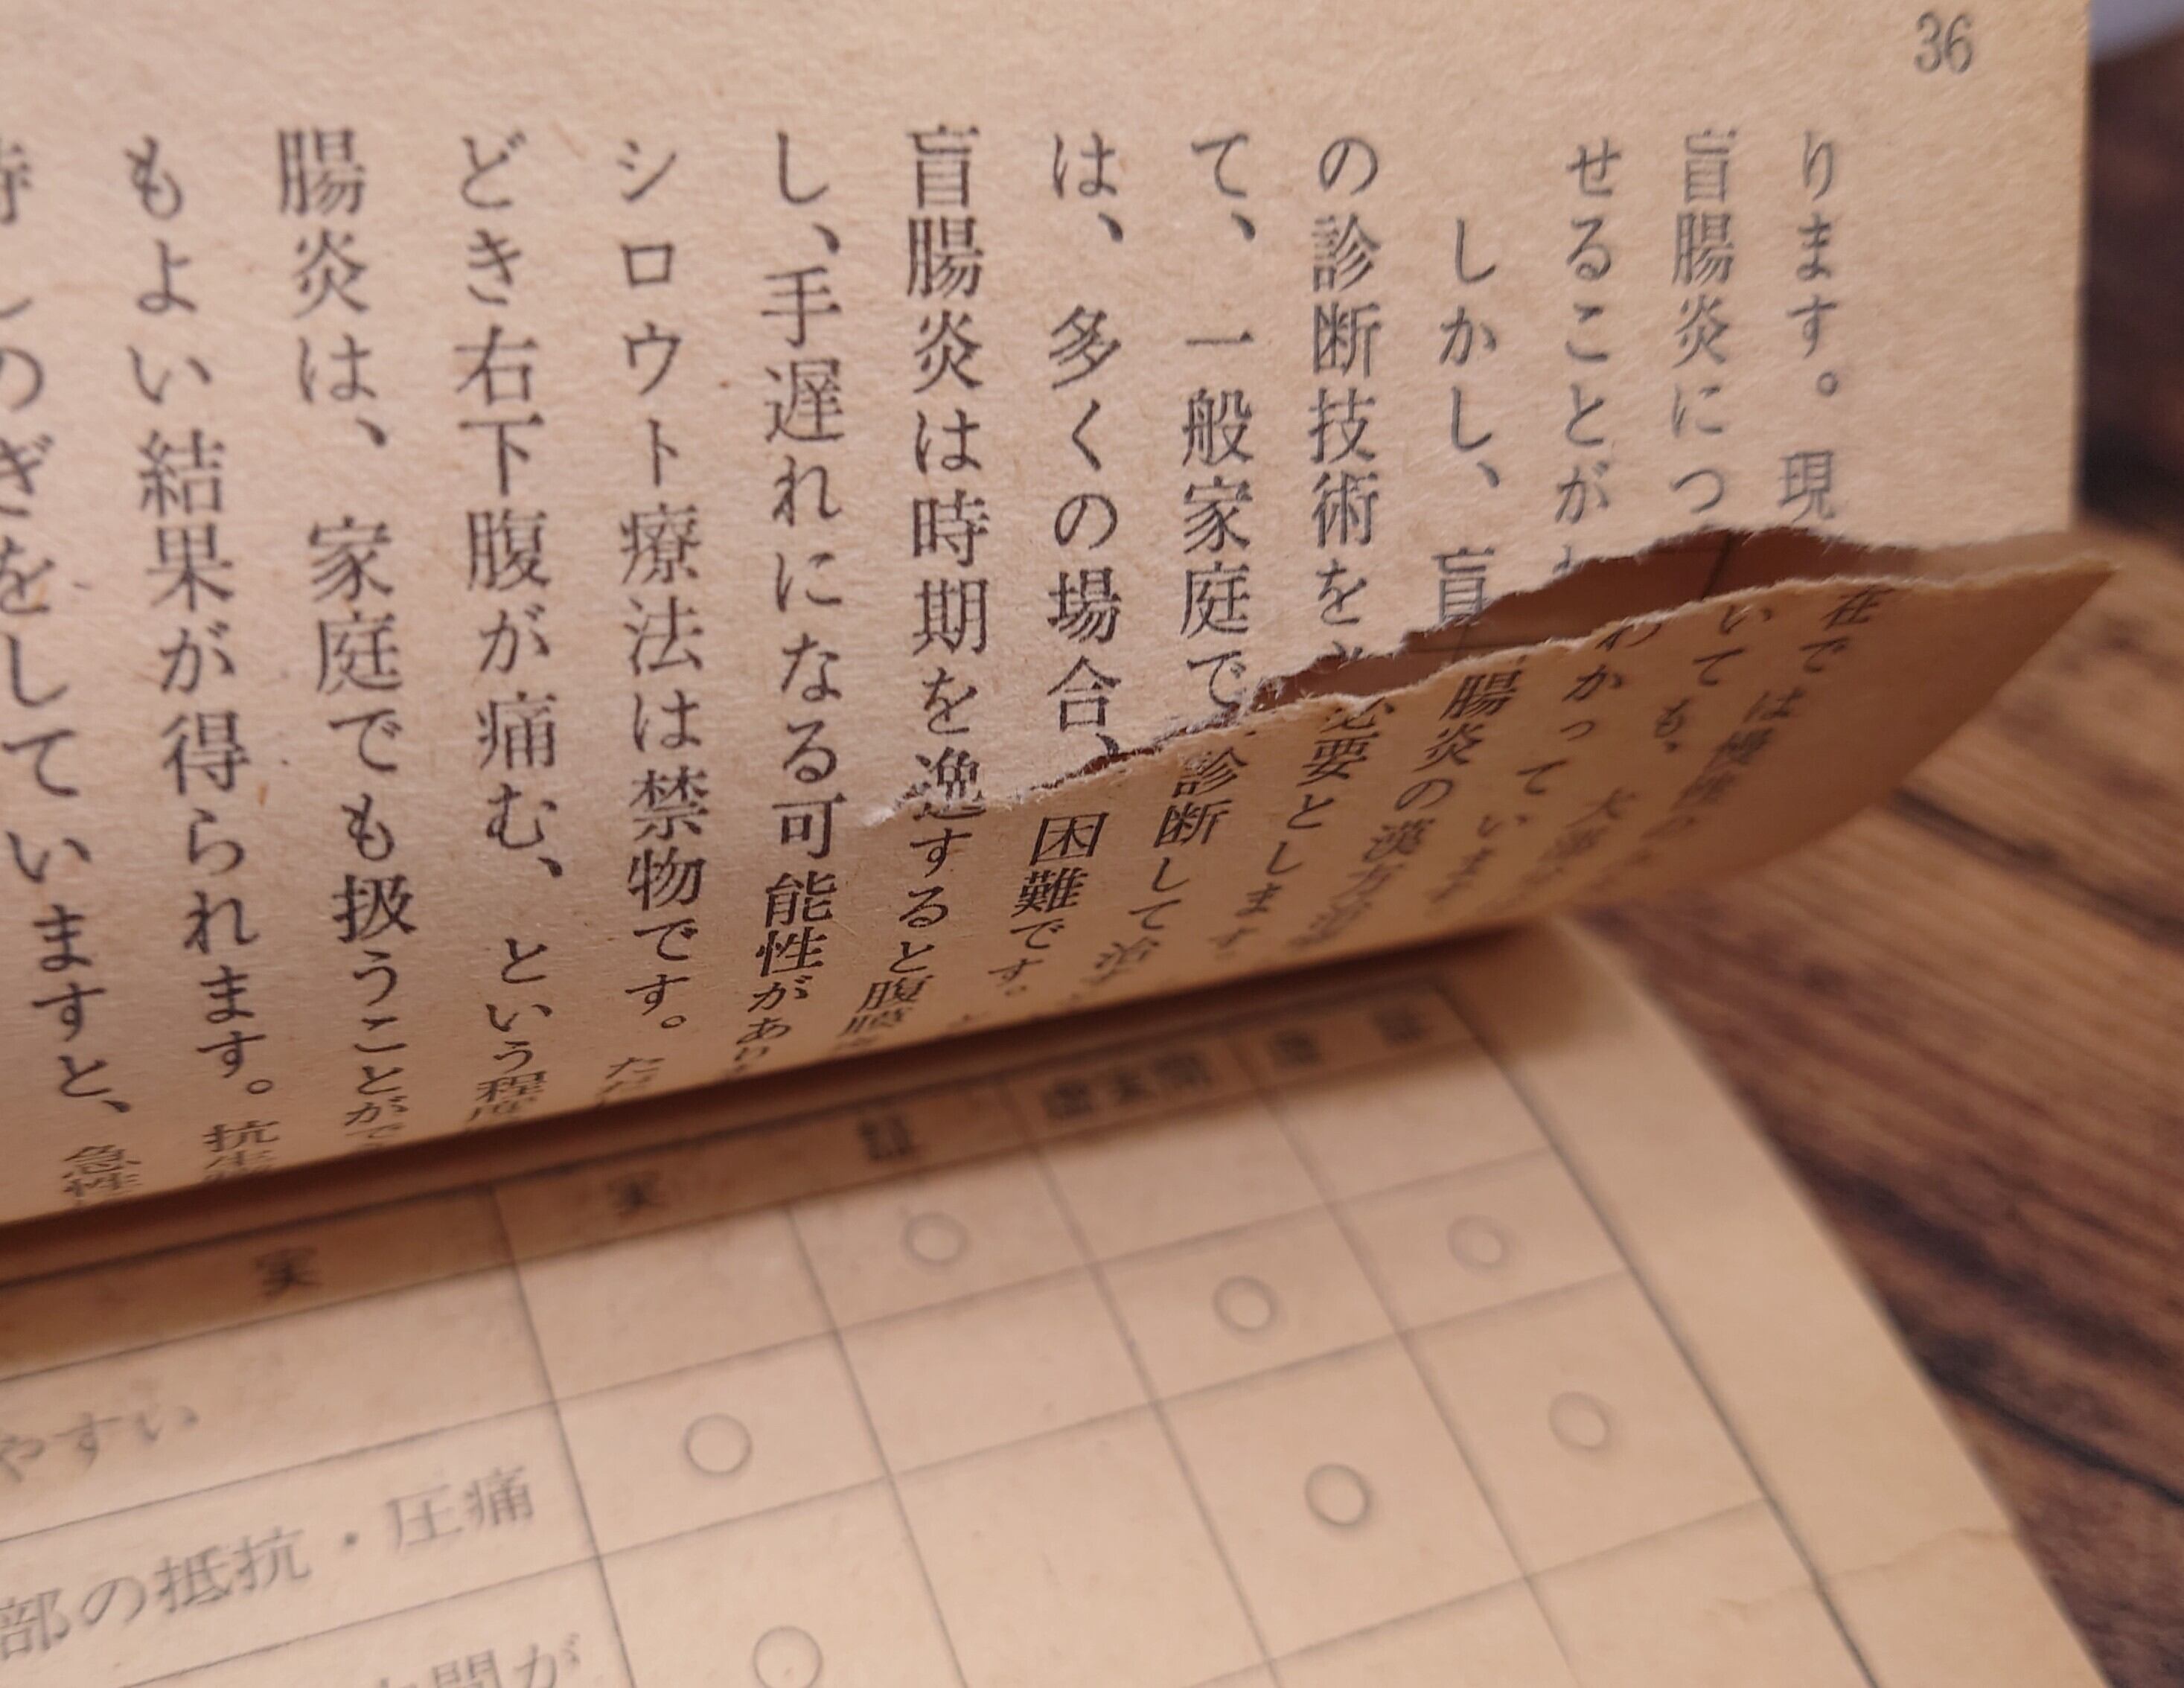 36
ります。現在では慢性の
盲腸炎についても、大部
せることがわかっていま
しかし、盲腸炎の漢方治
の診断技術を必要とします。
て、一般家庭で診断して治
は、多くの場合、困難です。
盲腸炎は時期を逸すると腹膜
し、手遅れになる可能性があり
シロウト療法は禁物です。ただ
どき右下腹が痛む、という程度
腸炎は、家庭でも扱うことがで
もよい結果が得られます。抗生
のぎをしていますと、急性
実
実 証
虚実間
虚 証
○
○
○
やすい
○
○
○
部の抵抗・圧痛
○
間が